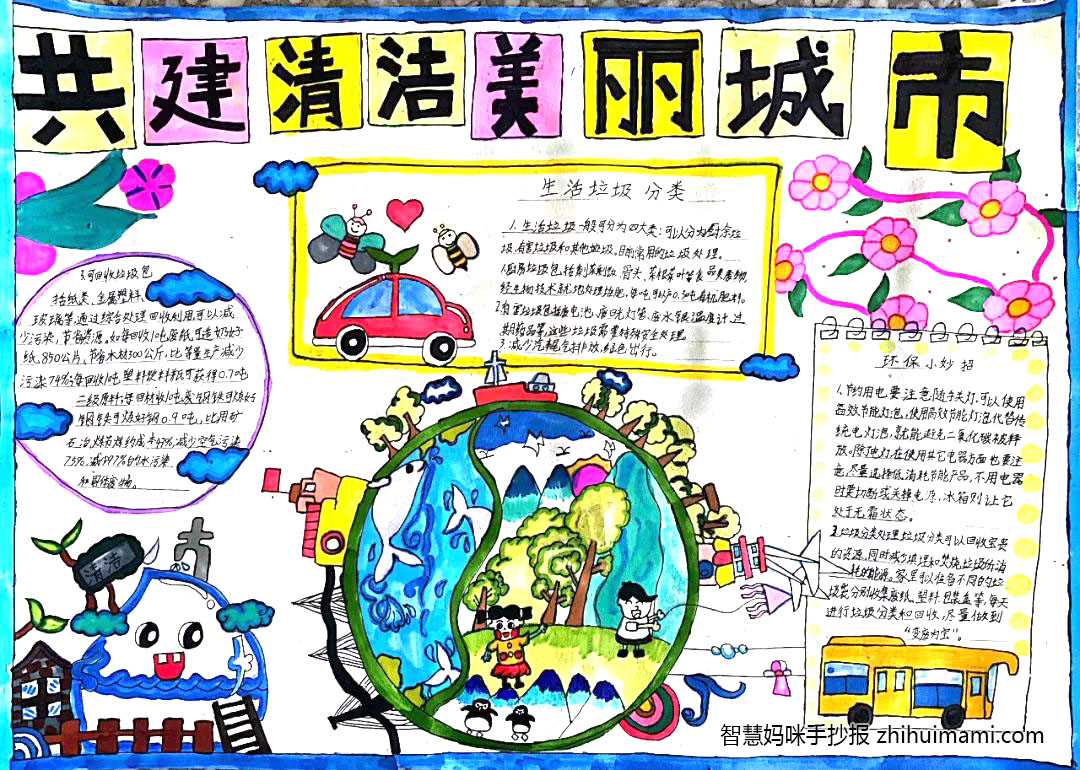 共建清洁美丽城市
生活垃圾分类
1.生活垃圾一般可分为四大类:可以分为厨余垃
圾.有害垃圾和其他垃圾.目前常用的垃圾处理。
1.厨房垃圾包括剩菜剩饭、骨头、菜根菜叶等食品类废物,
经生物技术就地处理堆肥,每吨可以产0.3吨有机肥料。
2.有害垃圾包括废电池、废日光灯管、废水银温度计、过
期药品等,这些垃圾需要特殊安全处理。
3.减少汽车尾气排放,绿色出行。
3.可回收垃圾包
括纸类、金属塑料、
玻璃等,通过综合处理回收利用,可以减
少污染,节省资源。如每回收1吨废纸可造好
纸850公斤,节省木材300公斤,比等量生产减少
污染74%;每回收1吨塑料饮料瓶可获得0.7吨
二级原料;每回收1吨废钢铁可炼好
钢0.9吨,比用矿
石冶炼节约成本47%,减少空气污染
75%,减少97%的水污染
和固体废物。
清洁
环保小妙招
1.节约用电要注意随手关灯,可以使用
高效节能灯泡,使用高效节能灯泡代替传
统电灯泡,就能避免二氧化碳被释
放。除电灯,在使用其它电器方面也要注
意,尽量选择低消耗节能产品,不用电器
时要切断或关掉电源,冰箱则让它
处于无霜状态。
2.垃圾分类处理.垃圾分类可以回收宝贵
的资源,同时减少填埋和焚烧垃圾所消
耗的能源。家里可以准备不同的垃
圾袋,分别收集废纸、塑料、包装盒等,每天
进行垃圾分类和回收,尽量做到
“变废为宝”。
智慧妈咪手抄报 zhihuimami.com